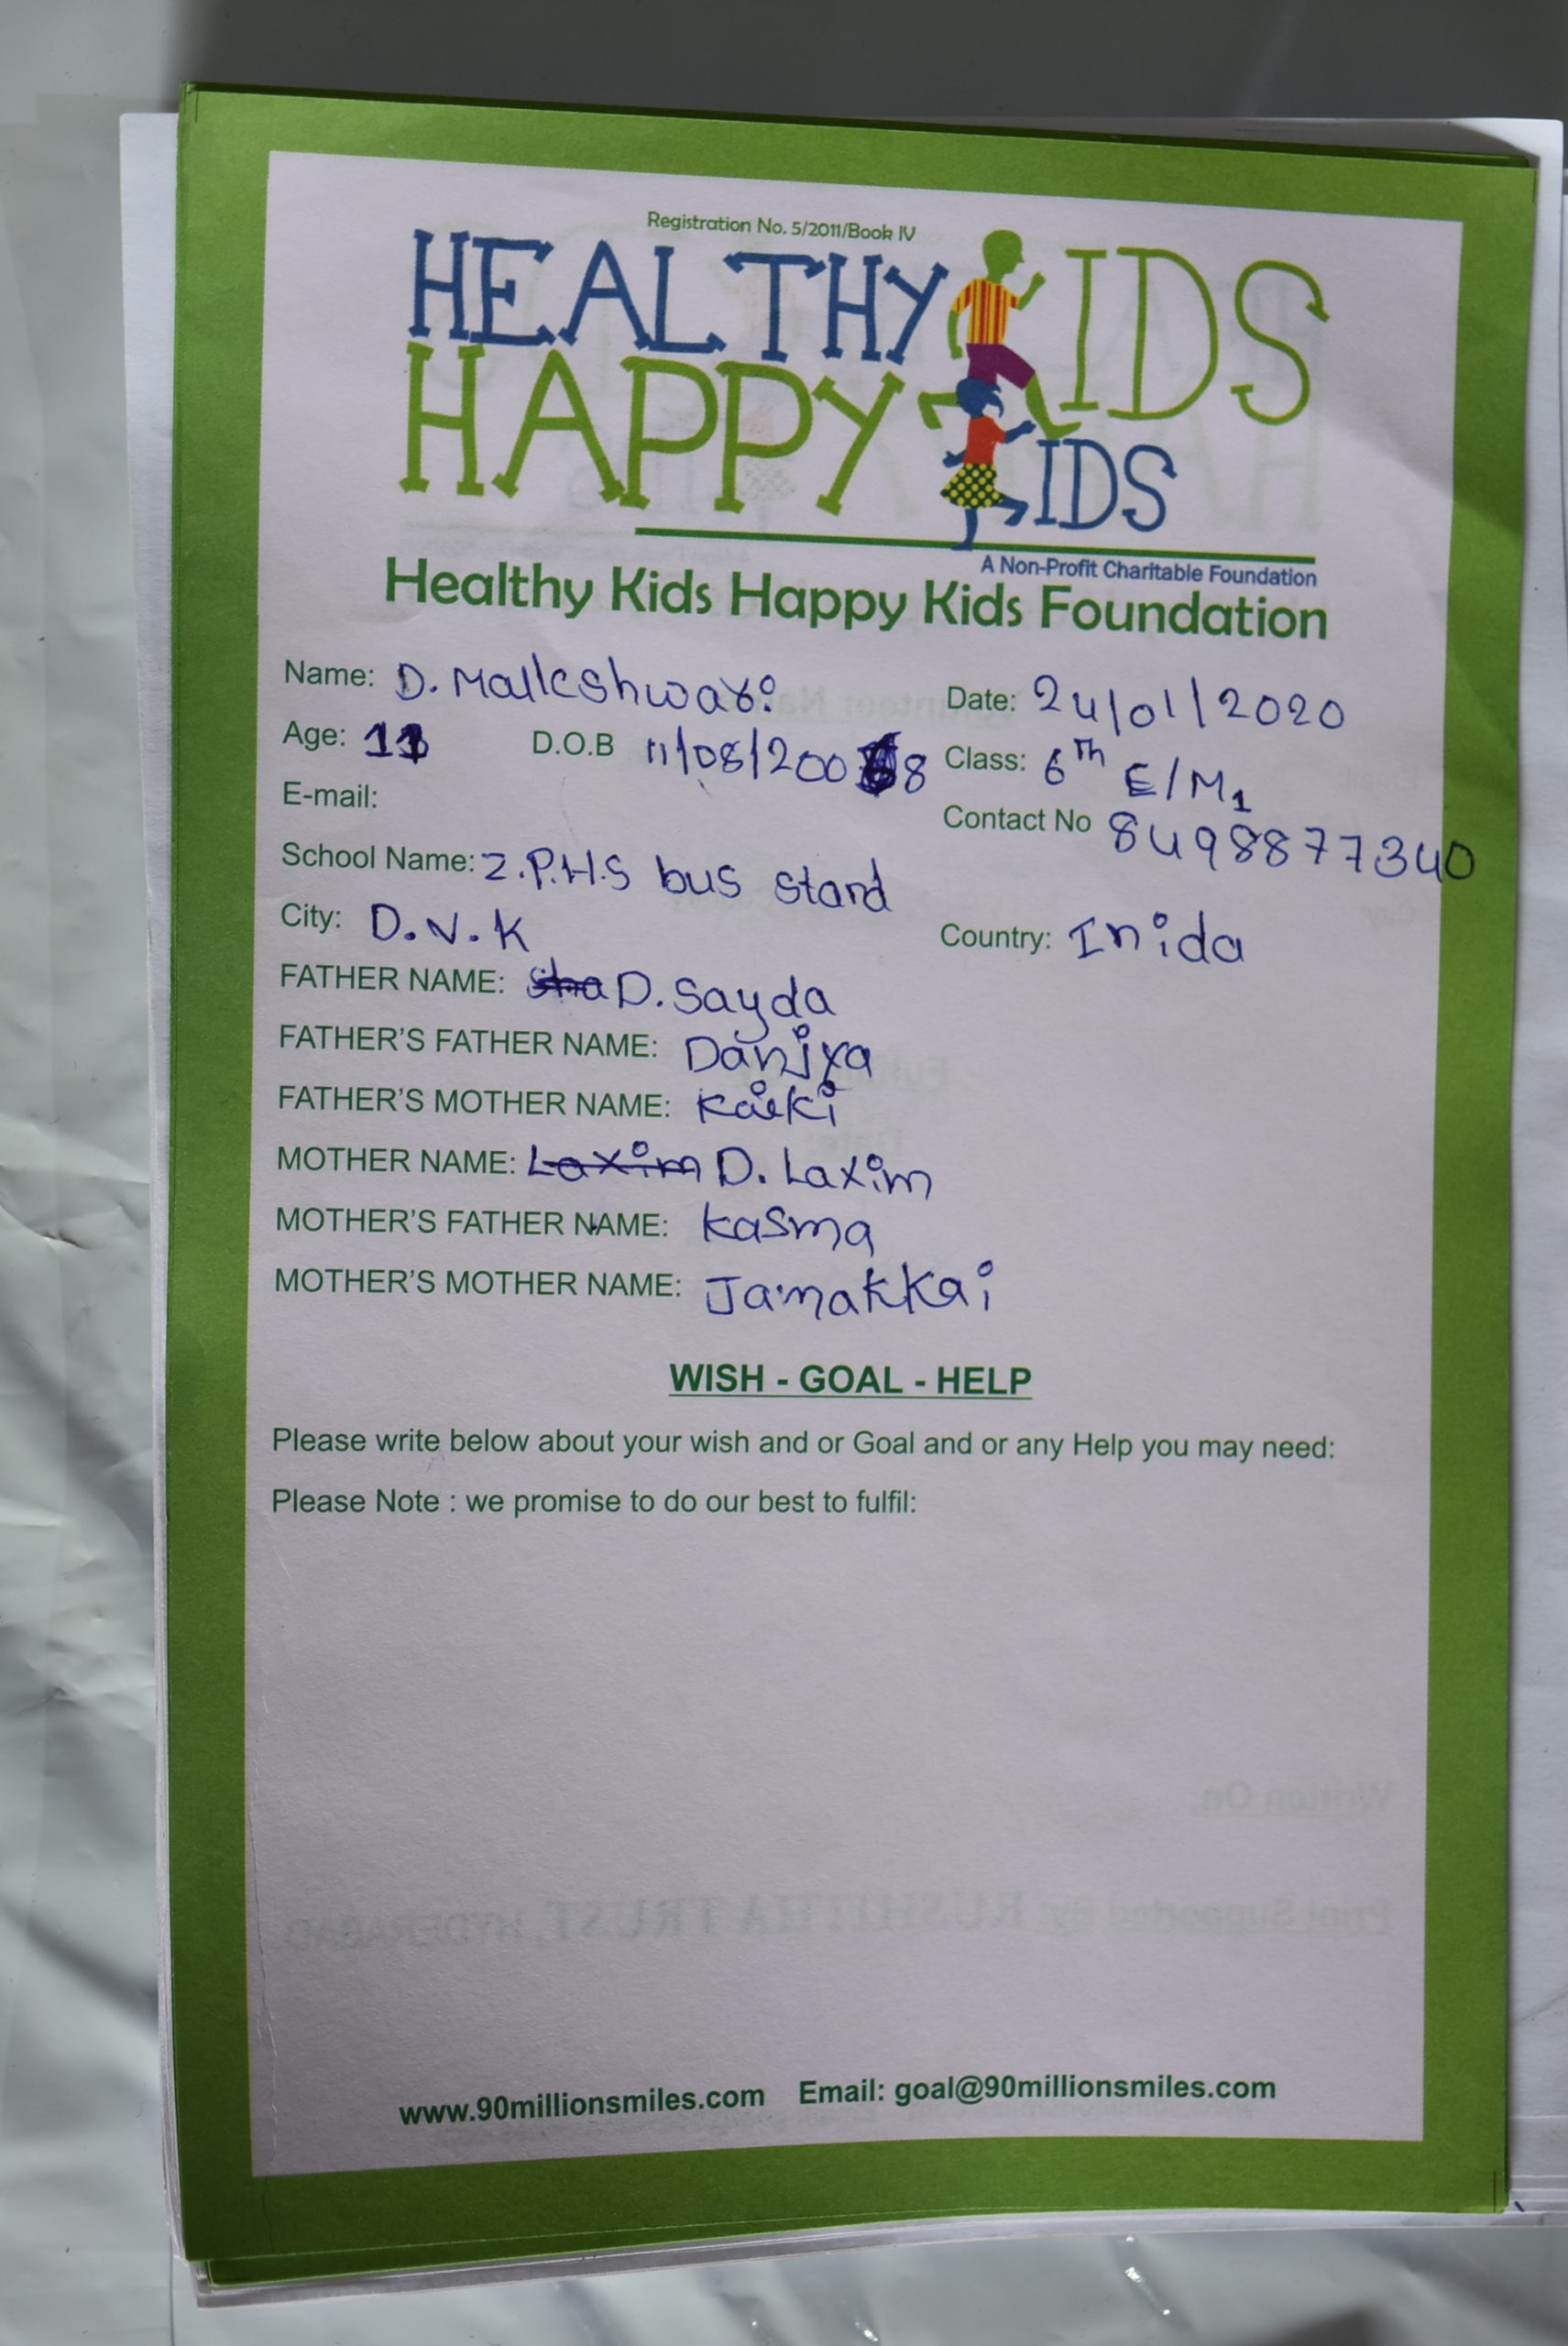 Registration No. 5/2011/Book IV
HEALTHY KIDS
HAPPY KIDS
A Non-Profit Charitable Foundation
Healthy Kids Happy Kids Foundation
Name: D. Malleshwari Date: 24/01/2020
Age: 11 D.O.B 11/08/2008 Class: 6th E/M1
E-mail: Contact No 8498877340
School Name: Z.P.H.S bus stand
City: D.V.K Country: Inida
FATHER NAME: D. Sayda
FATHER'S FATHER NAME: Danjya
FATHER'S MOTHER NAME:
MOTHER NAME: Laxim D. Laxim
MOTHER'S FATHER NAME: Kasma
MOTHER'S MOTHER NAME: Jamakkai
WISH - GOAL - HELP
Please write below about your wish and or Goal and or any Help you may need:
Please Note : we promise to do our best to fulfil:
Written On:
Print Supported By RUSHITHA TRUST, HYDERABAD
www.90millionsmiles.com Email: goal@90millionsmiles.com